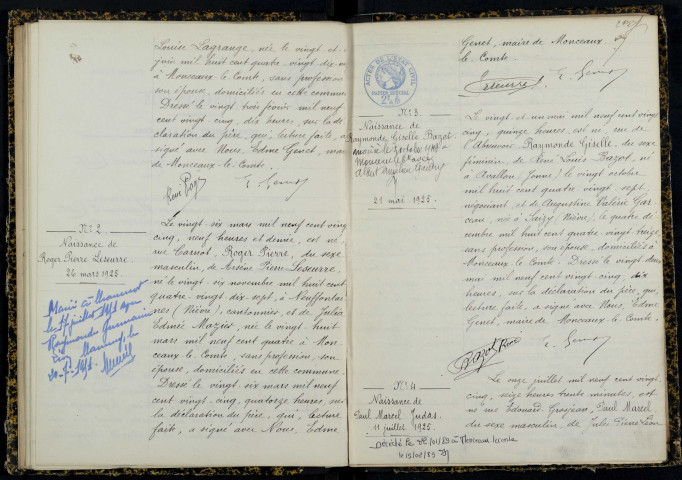 Louise Lagrange, née le vingt et
juin mil huit cent quatre vingt dix
à Monceaux-le-Comte, sans profession
son épouse, domiciliés en cette commune
Dressé le vingt trois février mil neuf
cent vingt cinq, dix heures, sur la dé
claration du père, qui, lecture faite, a
signé avec Nous, Edme Genet, mai
de Monceaux-le-Comte.
E. Genet
N° 2
Naissance de
Roger Pierre Leseurre
26 mars 1925.
Le vingt six mars mil neuf cent vingt
cinq, neuf heures et demie, est né,
rue Carnot, Roger Pierre, du sexe
masculin, de Pierre Leseurre,
né le vingt six novembre mil huit cent
quatre-vingt dix sept, à Neuffontai
nes (Nièvre), cantonnier, et de Julia
Edmée Maziès, née le vingt huit
mars mil neuf cent quatre à Mon
ceaux-le-Comte, sans profession, son
épouse, domiciliés en cette commune.
Dressé le vingt six mars mil neuf
cent vingt cinq, quatorze heures, sur
la déclaration du père, qui, lecture
faite, a signé avec Nous, Edme
Marié à
le 17 juillet
Raymonde
Genet, maire de Monceaux-
le-Comte.
Leseurre E. Genet
ACTES DE L'ETAT CIVIL
PAPIER SPECIAL
N° 3
Naissance de
Raymonde Giselle Bazot
21 mai 1925.
Le vingt et un mai mil neuf cent vingt
cinq, quinze heures, est née, rue de
l'Abreuvoir Raymonde Giselle, du sexe
féminin, de René Louis Bazot, né
à Avallon (Yonne) le vingt octobre
mil huit cent quatre vingt sept,
négociant, et de Augustine Valérie Gar
ceau, née à Saizy (Nièvre), le quatre dé
cembre mil huit cent quatre vingt treize
sans profession, son épouse, domiciliés à
Monceaux-le-Comte. Dressé le vingt deux
mai mil neuf cent vingt cinq, dix
heures, sur la déclaration du père, qui,
lecture faite, a signé avec Nous, Edme
Genet, maire de Monceaux-le-Comte.
Bazot René E. Genet
N° 4
Naissance de
Paul Marcel Judas
11 juillet 1925.
décédé le
Le onze juillet mil neuf cent vingt
cinq, seize heures trente minutes, est
né rue Edouard Grosjean, Paul Marcel
du sexe masculin, de Jules Pierre Léon